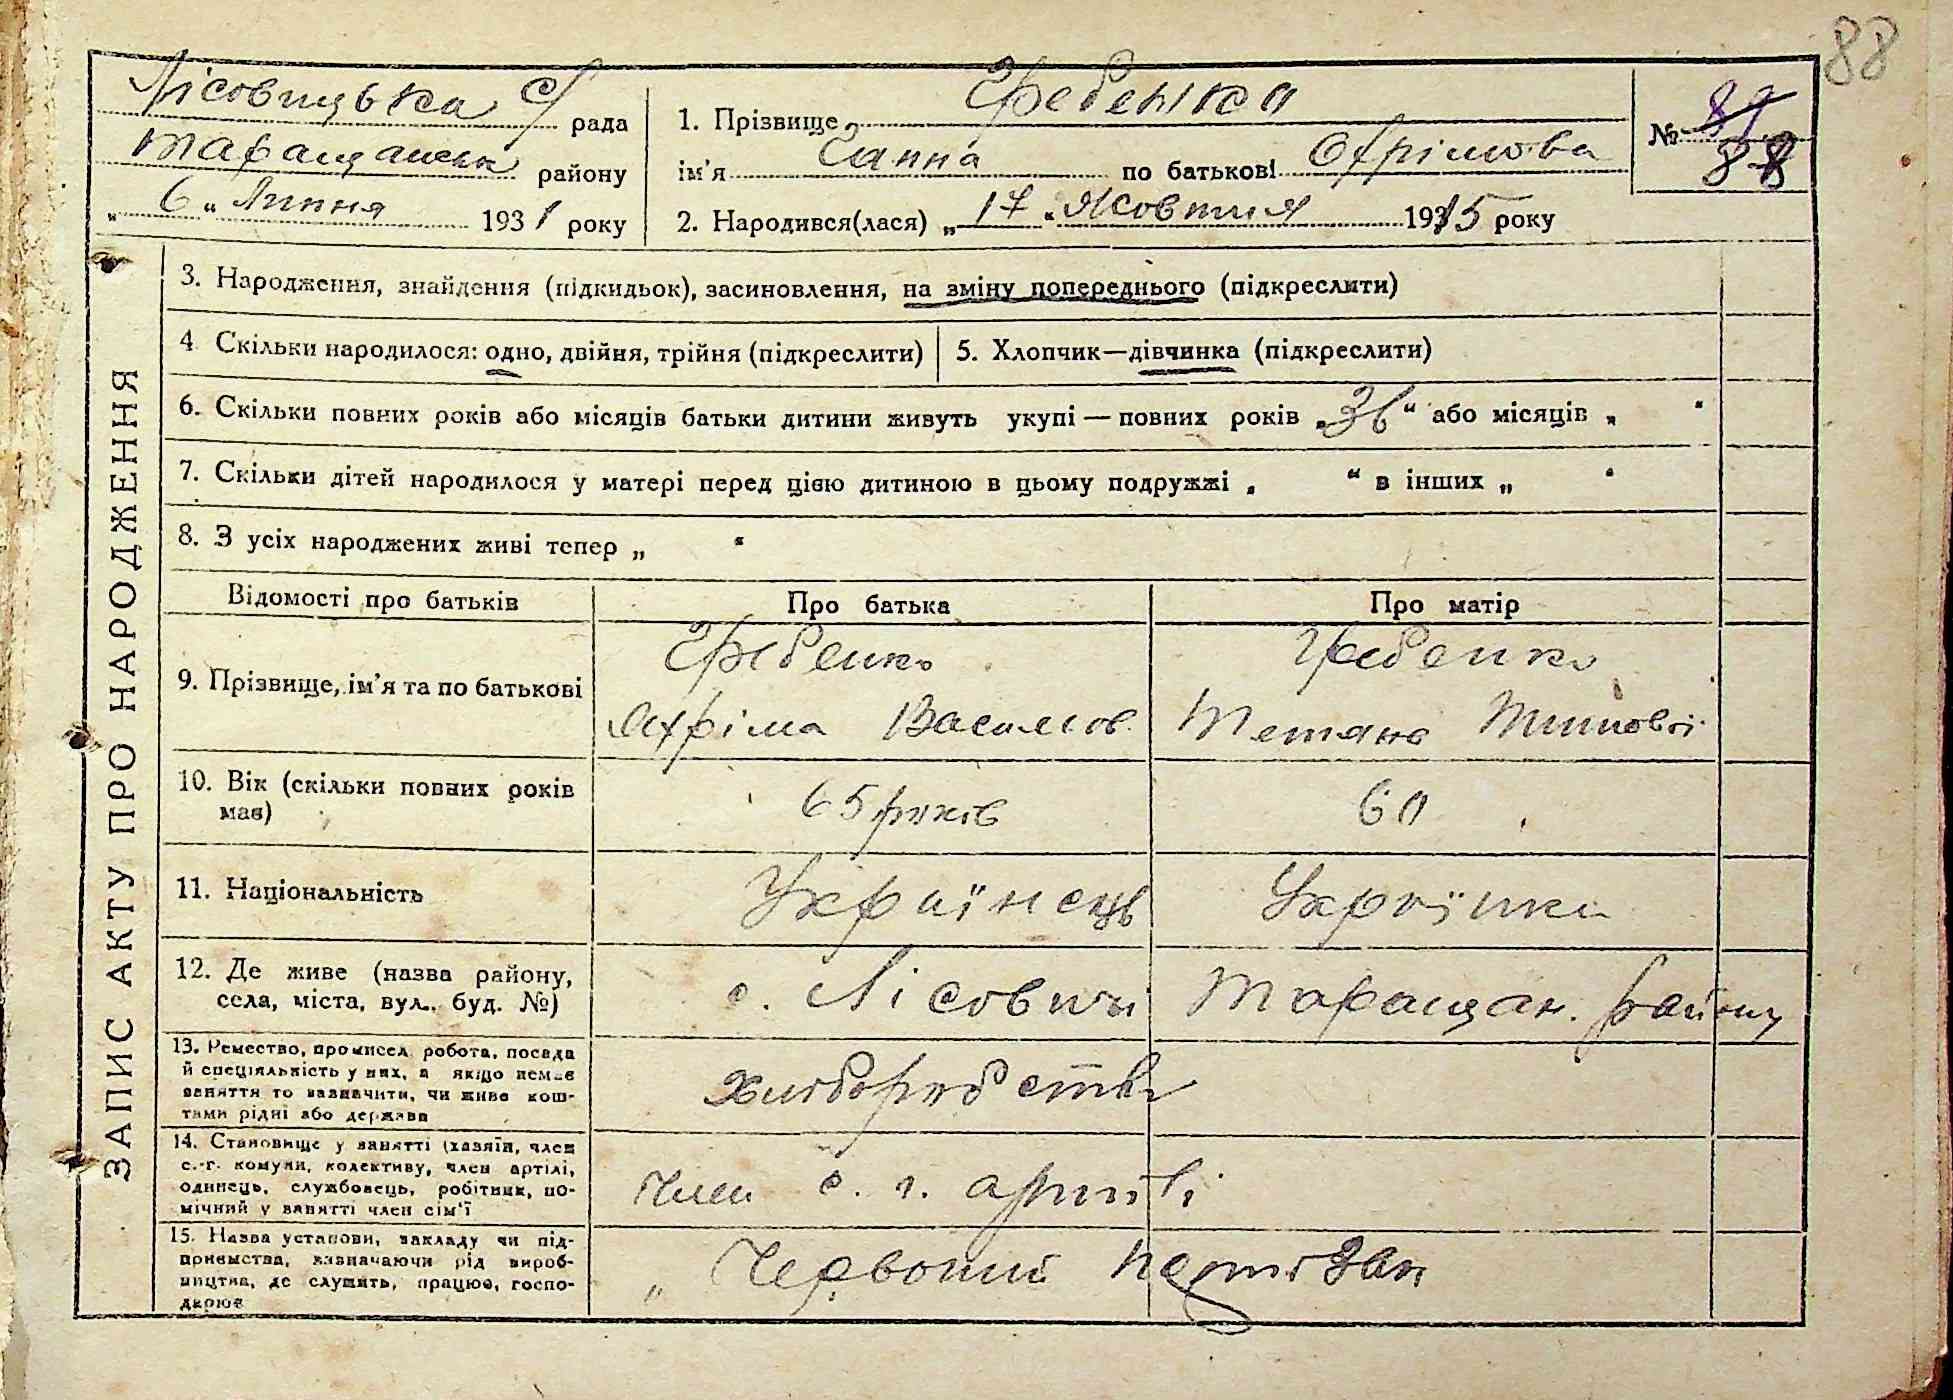 88
Лісовицька с/рада
Таращанськ району
„ 6 “ Липня 1931 року
1. Прізвище Гребенка
ім'я Ганна по батькові Охрімова
2. Народився(лася) „ 17 “ Жовтня 1915 року
№ 88
ЗАПИС АКТУ ПРО НАРОДЖЕННЯ
3. Народження, знайдення (підкидьок), засиновлення, на зміну попереднього (підкреслити)
4 Скільки народилося: одно, двійня, трійня (підкреслити)
5. Хлопчик—дівчинка (підкреслити)
6. Скільки повних років або місяців батьки дитини живуть укупі — повних років „ “ або місяців „ “
7. Скільки дітей народилося у матері перед цією дитиною в цьому подружжі „ “ в інших „ “
8. З усіх народжених живі тепер „ “
Відомості про батьків
Про батька
Про матір
9. Прізвище, ім'я та по батькові
Гребенко
Охріма Васильов.
Гребенко
Тетяна
10. Вік (скільки повних років
має)
65 років
60
11. Національність
Українець
Українка
12. Де живе (назва району,
села, міста, вул. буд. №)
с. Лісовичі Таращан. району
13. Ремество, промисел, робота, посада
й спеціяльність у них, а якщо немає
заняття то зазначити, чи живе кош-
тами рідні або держави
хліборобство
14. Становище у занятті (хазяїн, член
с.-г. комуни, колективу, член артілі,
одинець, службовець, робітник, по-
мічний у занятті член сім'ї
член с. г. артілі
15. Назва установи, закладу чи під-
приємства, зазначаючи рід вироб-
ництва, де служить, працює, госпо-
дарює
„ Червоний партізан